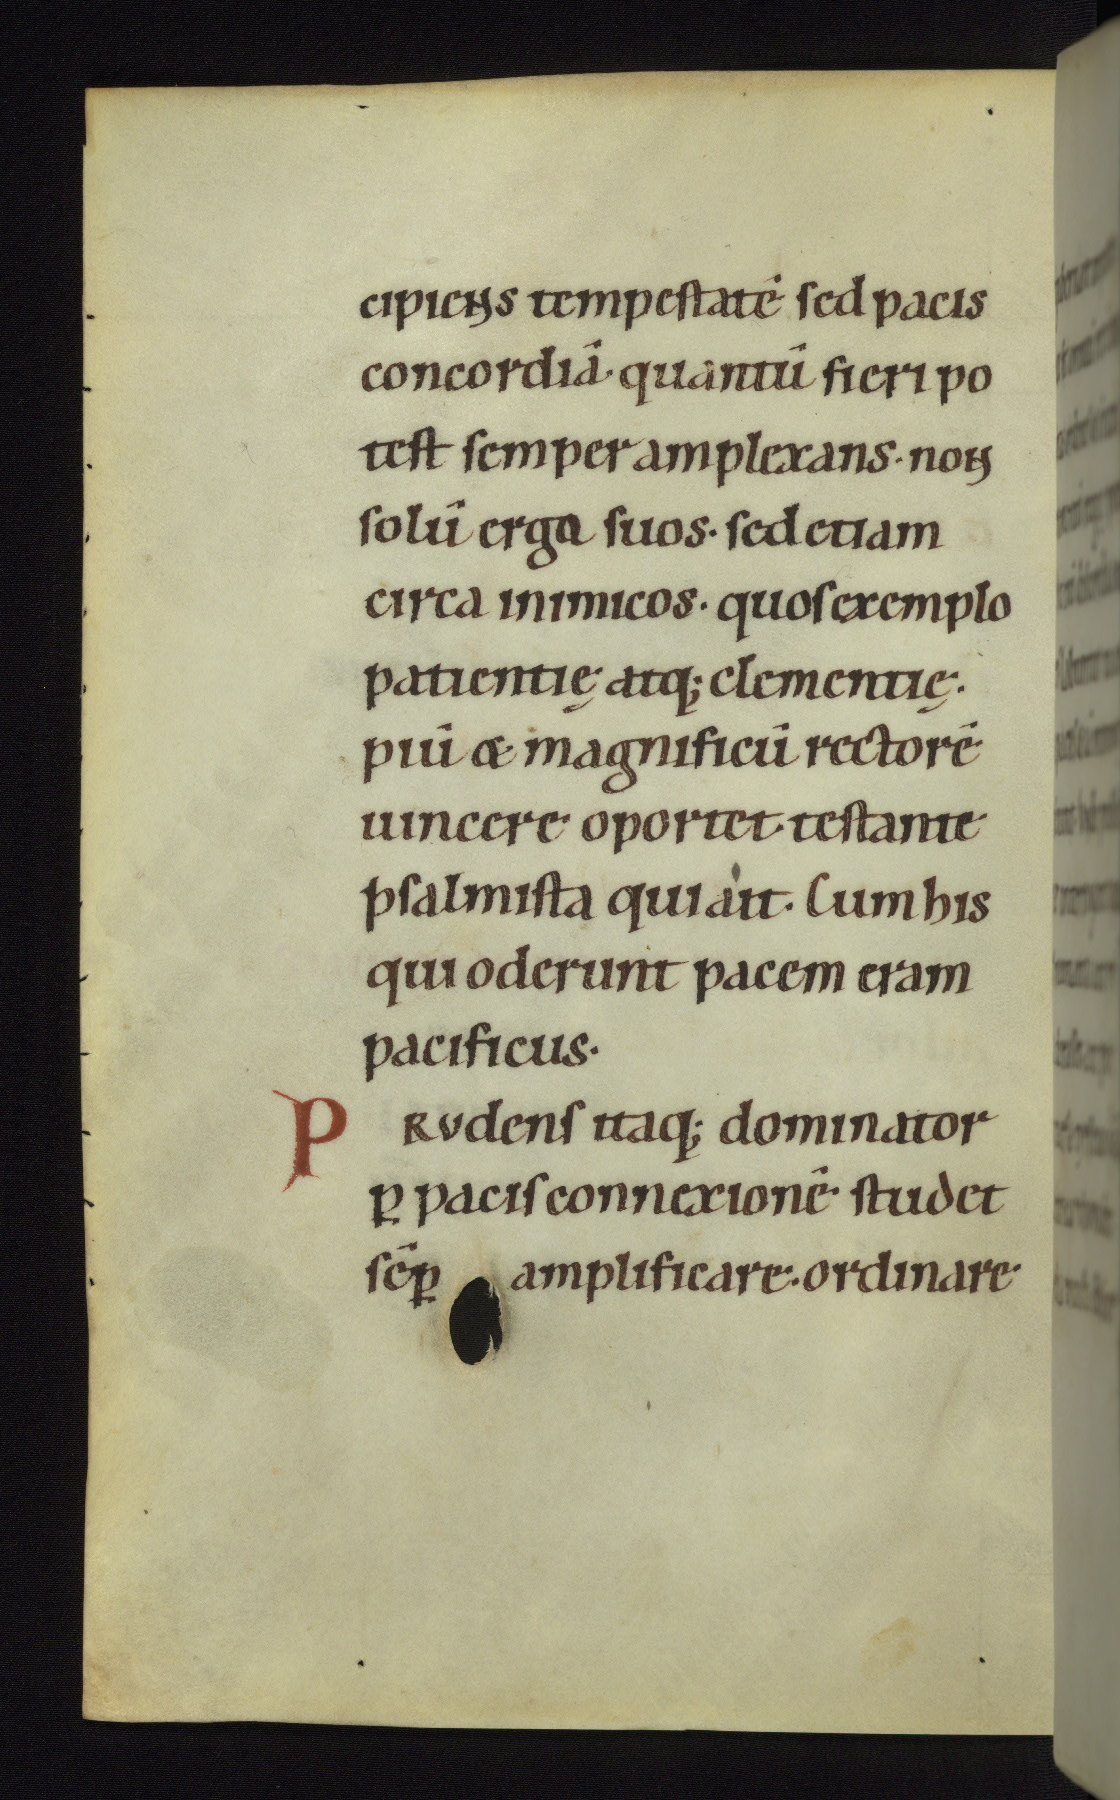 cipiens tempestatē sed pacis
concordiā· quantū fieri po
test semper amplexans· non
solū erga suos· sed etiam
circa inimicos· quos exemplo
patientię atq; clementię·
piū & magnificū rectorē
uincere oportet· testante
psalmista qui ait· Cum his
qui oderunt pacem eram
pacificus·
PRVdens itaq; dominator
ꝑ pacis connexionē studet
sēꝑ amplificare· ordinare·